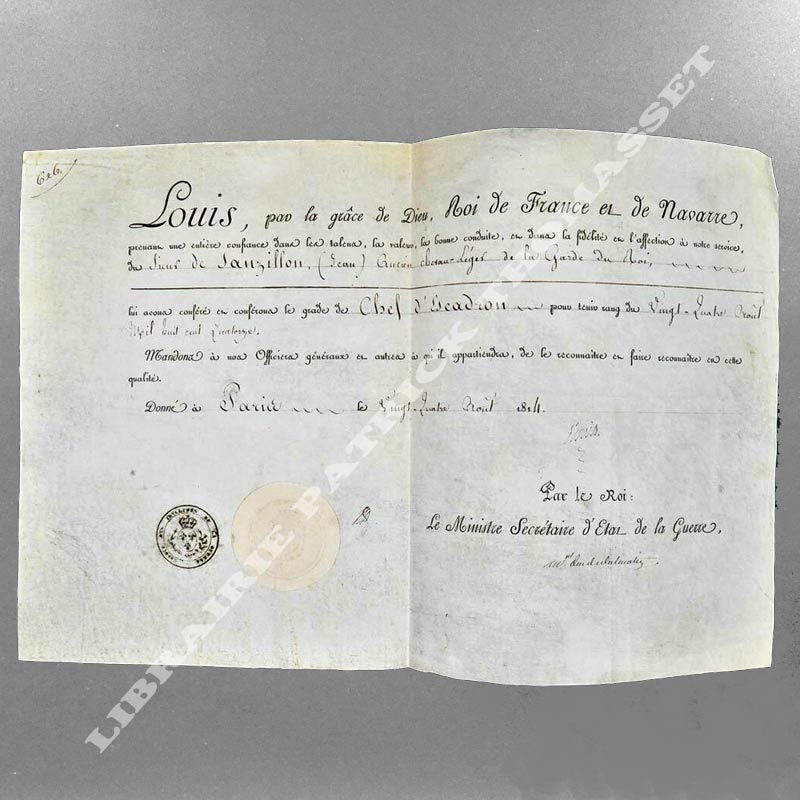 626.
Louis, par la grâce de Dieu, Roi de France et de Navarre,
prenant une entière confiance dans les talens, la valeur, la bonne conduite, et dans la fidélité et l'affection à notre service,
du Sieur de Sanzillon, (Jean) Ancien chevau-Léger de la Garde du Roi,
lui avons conféré et conférons le grade de Chef d'Escadron pour tenir rang du Vingt-Quatre Août
Mil huit cent Quatorze.
Mandons à nos Officiers généraux et autres à qu'il appartiendra, de le reconnaître et faire reconnaître en cette
qualité.
Donné à Paris le Vingt-Quatre Août 1814.
Louis.
Par le Roi:
Le Ministre Secrétaire d'Etat de la Guerre,
LIBRAIRIE PATRICK THOMASSET